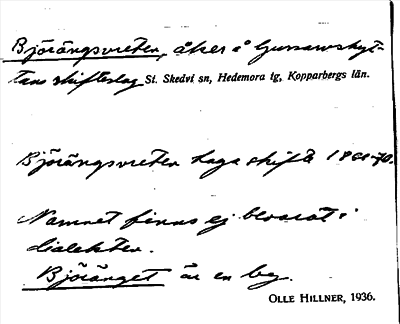 Björängsvreten, åker å Gussarvshyt-
tans skifteslag St. Skedvi sn, Hedemora tg, Kopparbergs län.
Björängsvreten laga skifte 1861-70.
Namnet finns ej bevarat i
dialekten.
Björänget är en by.
OLLE HILLNER, 1936.